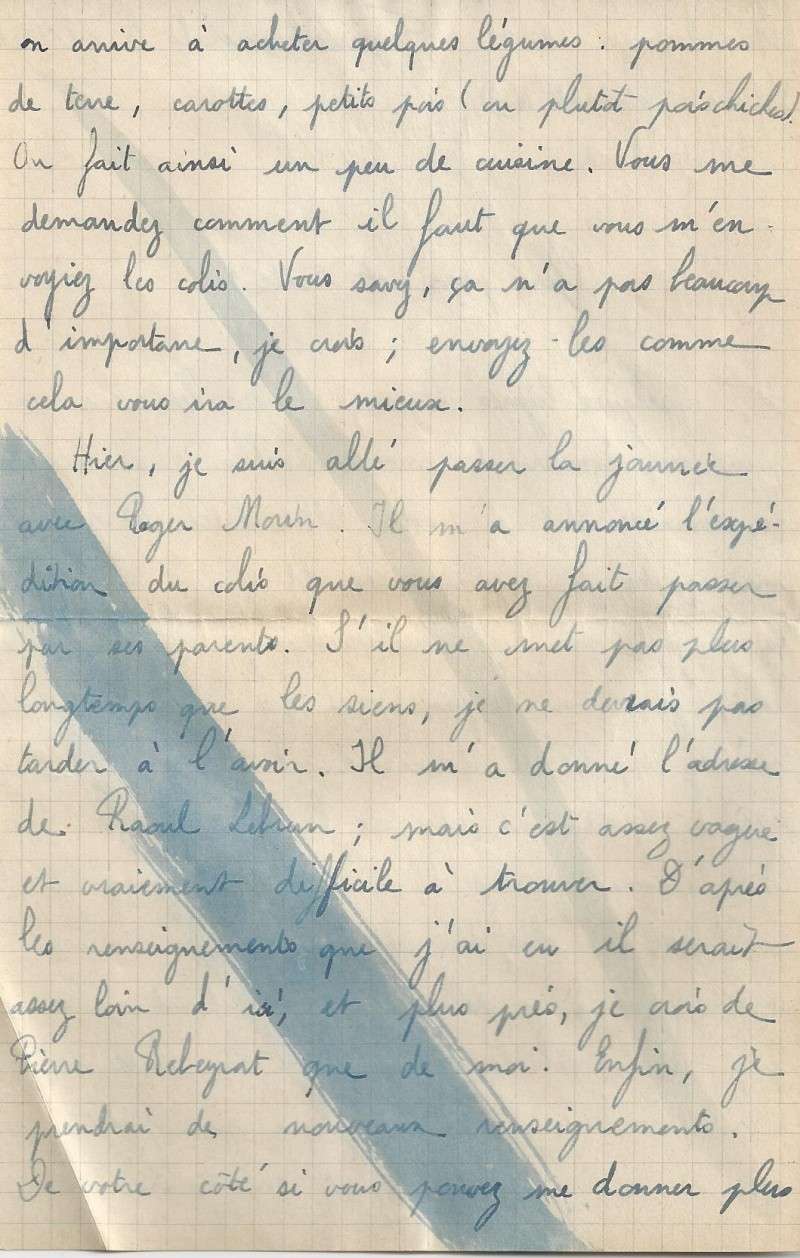 on arrive à acheter quelques légumes : pommes
de terre, carottes, petits pois (ou plutôt pois chiches).
On fait ainsi un peu de cuisine. Vous me
demandez comment il faut que vous m'en-
voyiez les colis. Vous savez, ça n'a pas beaucoup
d'importance, je crois ; envoyez-les comme
cela vous ira le mieux.
Hier, je suis allé passer la journée
avec Roger Morin. Il m'a annoncé l'expé-
dition du colis que vous avez fait passer
par ses parents. S'il ne met pas plus
longtemps que les siens, je ne devrais pas
tarder à l'avoir. Il m'a donné l'adresse
de Raoul Lebrun ; mais c'est assez vague
et vraiement difficile à trouver. D'après
les renseignements que j'ai eu il serait
assez loin d'ici, et plus près, je crois de
Pierre Rebeyrat que de moi. Enfin, je
prendrai de nouveaux renseignements.
De votre côté si vous pouvez me donner plus